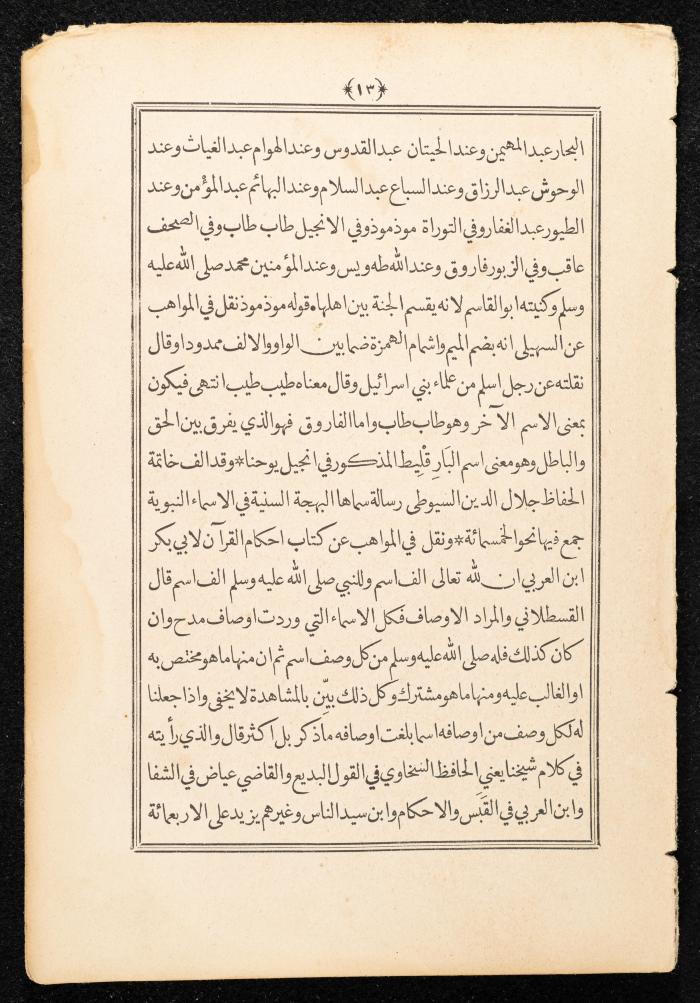 ﴿١٣﴾
البحار عبد المهيمن وعند الحيتان عبد القدوس وعند الهوام عبد الغياث وعند
الوحوش عبد الرزاق وعند السباع عبد السلام وعند البهائم عبد المؤمن وعند
الطيور عبد الغفار وفي التوراة موذموذ وفي الانجيل طاب طاب وفي الصحف
عاقب وفي الزبور فاروق وعند الله طه ويس وعند المؤمنين محمد صلى الله عليه
وسلم وكنيته ابو القاسم لانه يقسم الجنة بين اهلها ٭ قوله موذموذ نقل في المواهب
عن السهيلي انه بضم الميم واشمام الهمزة ضما بين الواو والالف ممدودا وقال
نقلته عن رجل اسلم من علماء بني اسرائيل وقال معناه طيب طيب انتهى فيكون
بمعنى الاسم الآخر وهو طاب طاب واما الفاروق فهو الذي يفرق بين الحق
والباطل وهو معنى اسم البَارِ قْلِيط المذكور في انجيل يوحنا ٭ وقد الف خاتمة
الحفاظ جلال الدين السيوطى رسالة سماها البهجة السنية في الاسماء النبوية
جمع فيها نحوا الخمسمائة ٭ ونقل في المواهب عن كتاب احكام القرآن لابي بكر
ابن العربي ان لله تعالى الف اسم وللنبي صلى الله عليه وسلم الف اسم قال
القسطلاني والمراد الاوصاف فكل الاسماء التي وردت اوصاف مدح وان
كان كذلك فله صلى الله عليه وسلم من كل وصف اسم ثم ان منها ما هو مختص به
او الغالب عليه ومنها ما هو مشترك وكل ذلك بيِّن بالمشاهدة لا يخفى واذا جعلنا
له لكل وصف من اوصافه اسما بلغت اوصافه ما ذكر بل اكثر قال والذي رأيته
في كلام شيخنا يعني الحافظ السخاوي في القول البديع والقاضي عياض في الشفا
وابن العربي في القَبَس والاحكام وابن سيد الناس وغيرهم يزيد على الاربعمائة